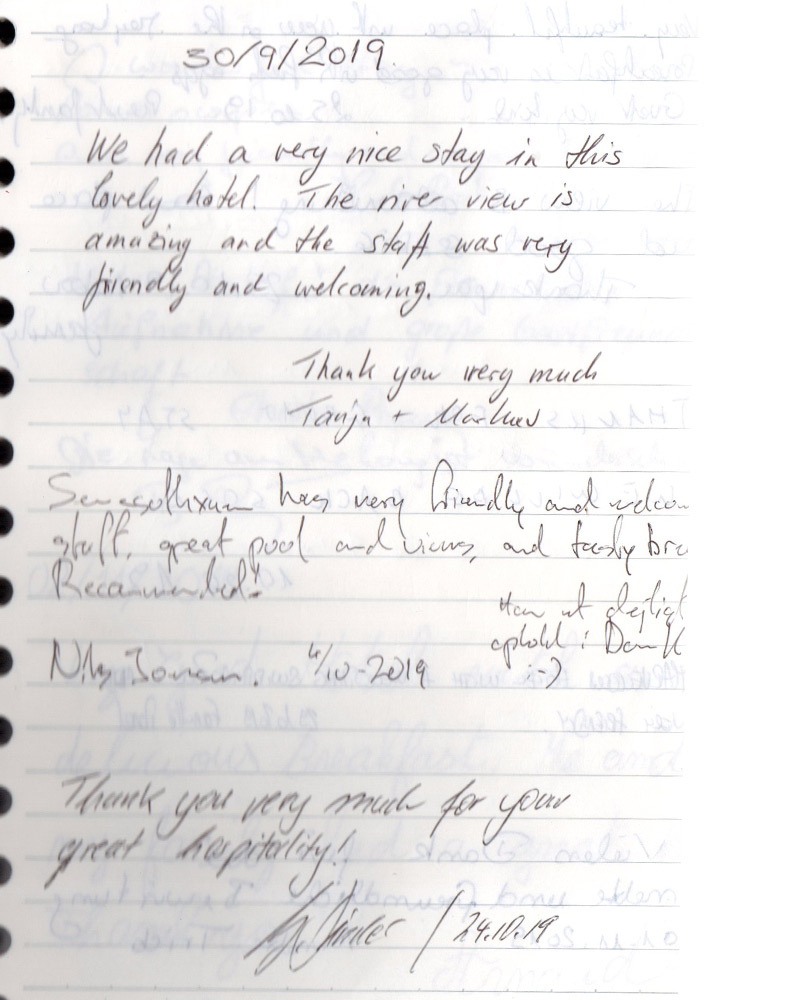 30/9/2019
We had a very nice stay in this
lovely hotel. The river view is
amazing and the staff was very
friendly and welcoming.
Thank you very much
Tanja + Markus
has very friendly and welcom
staff, great pool and views, and tasty bre
Recommended!
Hav et dejligt
ophold i
:-)
4/10-2019
Thank you very much for your
great hospitality!
/ 24.10.19